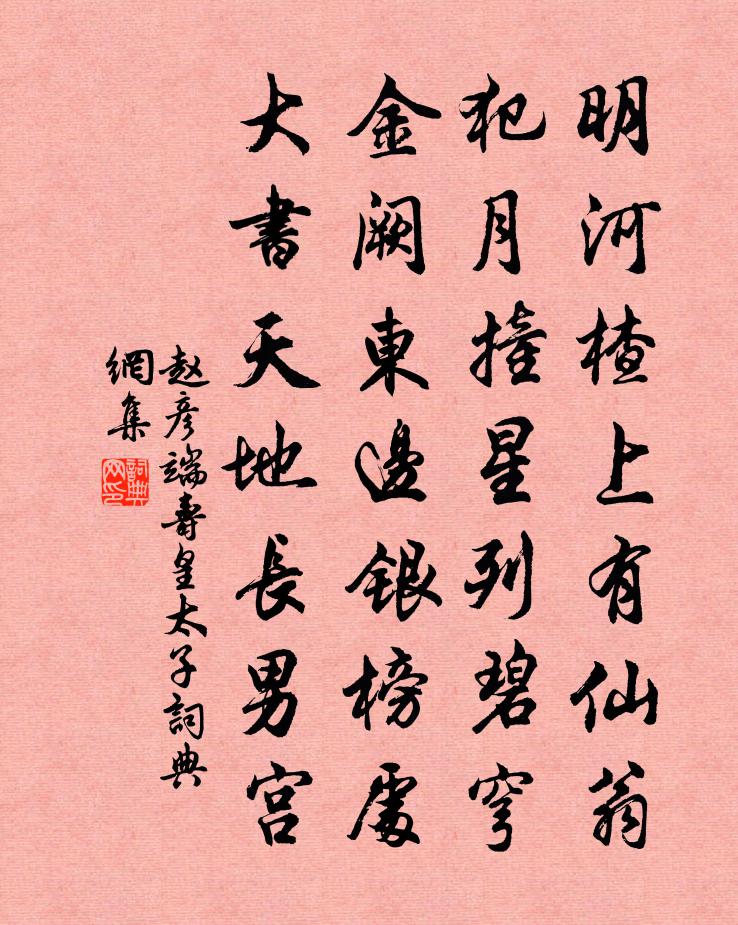 明河楂上有仙翁
犯月撞星列碧穹
金阙東邊銀榜處
大書天地長男宫
赵彦端壽皇太子詞典
網集
詞典
网印